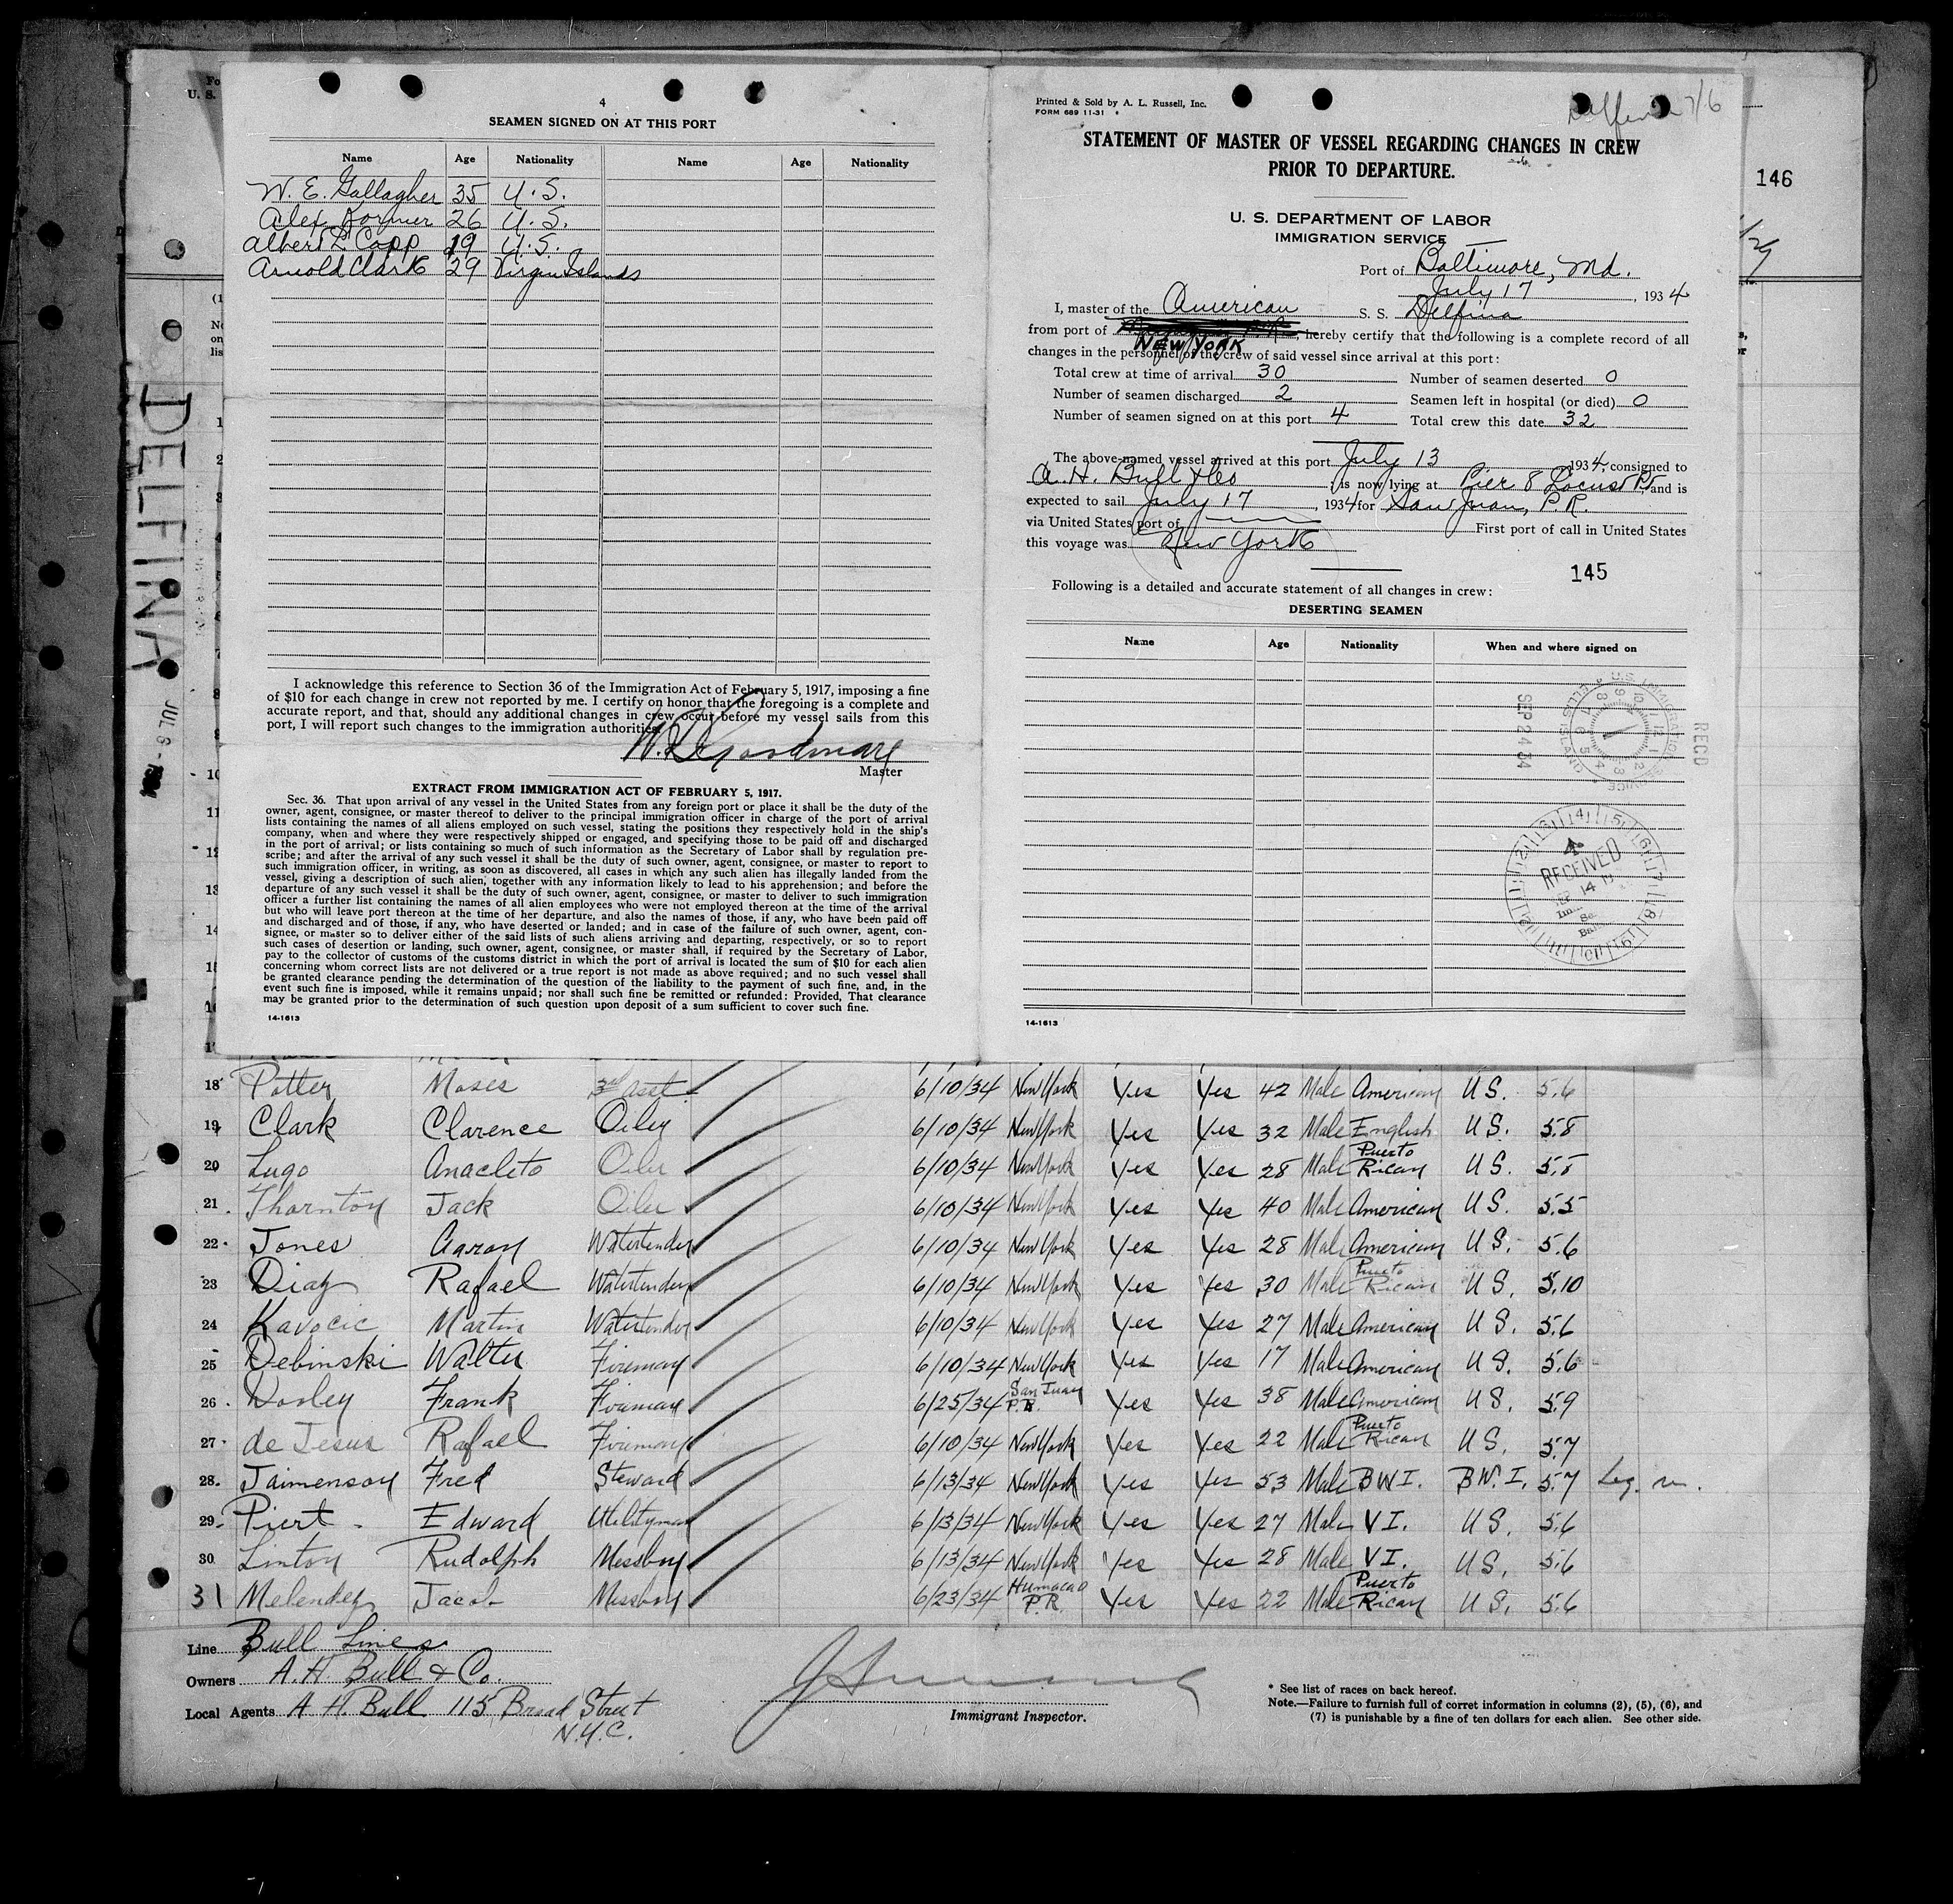 4
SEAMEN SIGNED ON AT THIS PORT
Name Age Nationality Name Age Nationality
W. E. Gallagher 35 U.S.
Alex Dormer 26 U.S.
Albert L. Copp 19 U.S.
Arnold Clark 29 Virgin Islands
I acknowledge this reference to Section 36 of the Immigration Act of February 5, 1917, imposing a fine
of $10 for each change in crew not reported by me. I certify on honor that the foregoing is a complete and
accurate report, and that, should any additional changes in crew occur before my vessel sails from this
port, I will report such changes to the immigration authorities.
Master
EXTRACT FROM IMMIGRATION ACT OF FEBRUARY 5, 1917.
Sec. 36. That upon arrival of any vessel in the United States from any foreign port or place it shall be the duty of the
owner, agent, consignee, or master thereof to deliver to the principal immigration officer in charge of the port of arrival
lists containing the names of all aliens employed on such vessel, stating the positions they respectively hold in the ship's
company, when and where they were respectively shipped or engaged, and specifying those to be paid off and discharged
in the port of arrival; or lists containing so much of such information as the Secretary of Labor shall by regulation pre-
scribe; and after the arrival of any such vessel it shall be the duty of such owner, agent, consignee, or master to report to
such immigration officer, in writing, as soon as discovered, all cases in which any such alien has illegally landed from the
vessel, giving a description of such alien, together with any information likely to lead to his apprehension; and before the
departure of any such vessel it shall be the duty of such owner, agent, consignee, or master to deliver to such immigration
officer a further list containing the names of all alien employees who were not employed thereon at the time of the arrival
but who will leave port thereon at the time of her departure, and also the names of those, if any, who have been paid off
and discharged and of those, if any, who have deserted or landed; and in case of the failure of such owner, agent, con-
signee, or master so to deliver either of the said lists of such aliens arriving and departing, respectively, or so to report
such cases of desertion or landing, such owner, agent, consignee, or master shall, if required by the Secretary of Labor,
pay to the collector of customs of the customs district in which the port of arrival is located the sum of $10 for each alien
concerning whom correct lists are not delivered or a true report is not made as above required; and no such vessel shall
be granted clearance pending the determination of the question of the liability to the payment of such fine, and, in the
event such fine is imposed, while it remains unpaid; nor shall such fine be remitted or refunded: Provided, That clearance
may be granted prior to the determination of such question upon deposit of a sum sufficient to cover such fine.
14-1613
Printed & Sold by A. L. Russell, Inc.
FORM 689 11-31
Delfina 7/6
STATEMENT OF MASTER OF VESSEL REGARDING CHANGES IN CREW
PRIOR TO DEPARTURE.
U. S. DEPARTMENT OF LABOR
IMMIGRATION SERVICE
Port of Baltimore, Md.
July 17, 1934
I, master of the American S. S. Delfina
from port of NEW YORK, hereby certify that the following is a complete record of all
changes in the personnel of the crew of said vessel since arrival at this port:
Total crew at time of arrival 30 Number of seamen deserted 0
Number of seamen discharged 2 Seamen left in hospital (or died) 0
Number of seamen signed on at this port 4 Total crew this date 32
The above-named vessel arrived at this port July 13 1934, consigned to
A. H. Bull & Co, is now lying at Pier 8 Locust Pt, and is
expected to sail July 17, 1934 for San Juan, P.R.
via United States port of First port of call in United States
this voyage was New York
145
Following is a detailed and accurate statement of all changes in crew:
DESERTING SEAMEN
Name Age Nationality When and where signed on
SEP 24 34
REC'D
RECEIVED
14-1613
146
DELFINA
JUL 8 - 1934
18 Potter Moses 3rd Asst. 6/10/34 New York Yes Yes 42 Male American U S. 5.6
19 Clark Clarence Oiler 6/10/34 New York Yes Yes 32 Male English U S. 5.8
20 Lugo Anacleto Oiler 6/10/34 New York Yes Yes 28 Male Puerto Rican U S. 5.5
21 Thornton Jack Oiler 6/10/34 New York Yes Yes 40 Male American U S. 5.5
22 Jones Aaron Watertender 6/10/34 New York Yes Yes 28 Male American U S. 5.6
23 Diaz Rafael Watertender 6/10/34 New York Yes Yes 30 Male Puerto Rican U S. 5.10
24 Kavocic Martin Watertender 6/10/34 New York Yes Yes 27 Male American U S. 5.6
25 Debinski Walter Fireman 6/10/34 New York Yes Yes 17 Male American U S. 5.6
26 Dosley Frank Fireman 6/25/34 San Juan P.R. Yes Yes 38 Male American U S. 5.9
27 de Jesus Rafael Fireman 6/10/34 New York Yes Yes 22 Male Puerto Rican U S. 5.7
28 Jaimenson Fred Steward 6/13/34 New York Yes Yes 53 Male B W I. B W. I. 5.7
29 Piert Edward Utilityman 6/13/34 New York Yes Yes 27 Male V I. U S. 5.6
30 Linton Rudolph Messboy 6/13/34 New York Yes Yes 28 Male V I. U S. 5.6
31 Melendez Jacob Messboy 6/23/34 Humacao P.R. Yes Yes 22 Male Puerto Rican U S. 5.6
Line Bull Lines
Owners A. H. Bull & Co.
Local Agents A H. Bull 115 Broad Street
N.Y.C.
Immigrant Inspector.
* See list of races on back hereof.
Note.—Failure to furnish full of corret information in columns (2), (5), (6), and
(7) is punishable by a fine of ten dollars for each alien. See other side.